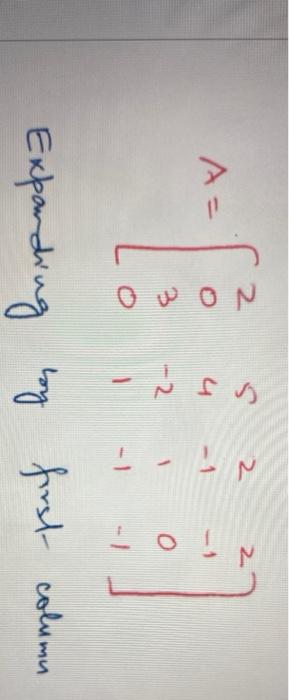 2 5 2 2
A = 0 4 -1 -1
3 -2 1 0
0 1 -1 -1
Expanding by first column